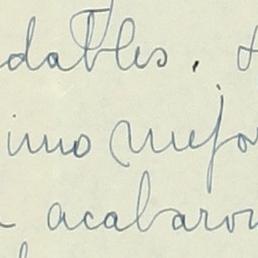 dables.
imo mejor
acabaron